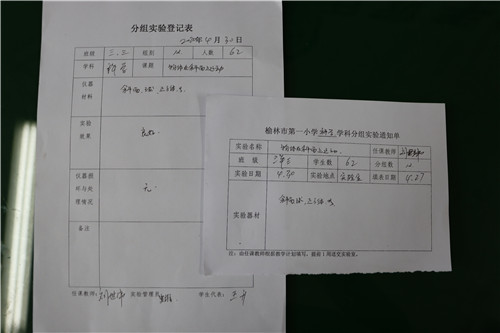 分组实验登记表
年4月30日
班级 三.三 组别 12 人数 62
学科 科学 课题 物体在斜面上运动
仪器材料
实验效果 良好
仪器损坏与处理情况 无
备注
任课教师： 实验管理员 学生代表：
榆林市第一小学科学学科分组实验通知单
实验名称 物体在斜面上运动 任课教师
班级 三年三 学生数 62 分组数 12
实验日期 4.30 实验地点 实验室 送表日期 4.27
实验器材
注：由任课教师根据教学计划填写，提前1周送交实验室。